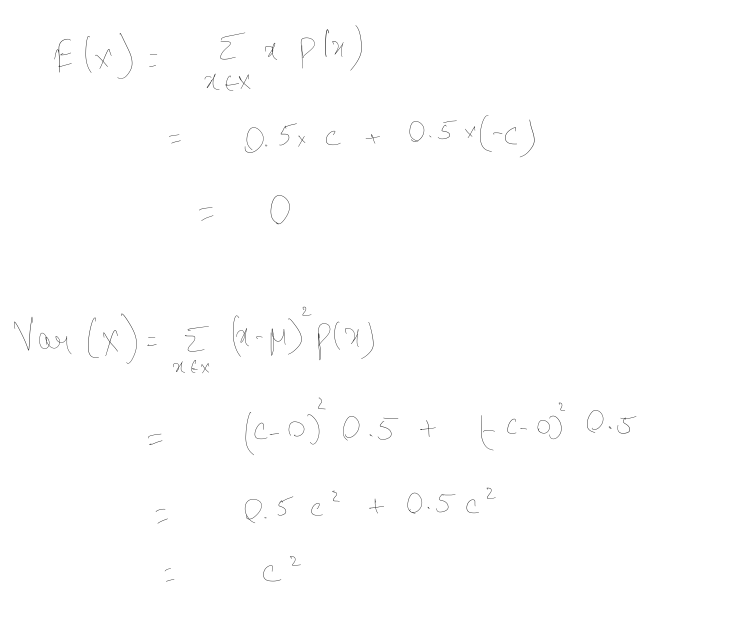 E(X) = Σ x P(x)
x∈X
= 0.5 × c + 0.5 × (-c)
= 0
Var (X) = Σ (x-μ)² P(x)
x∈X
= (c-0)² 0.5 + (-c-0)² 0.5
= 0.5 c² + 0.5 c²
= c²